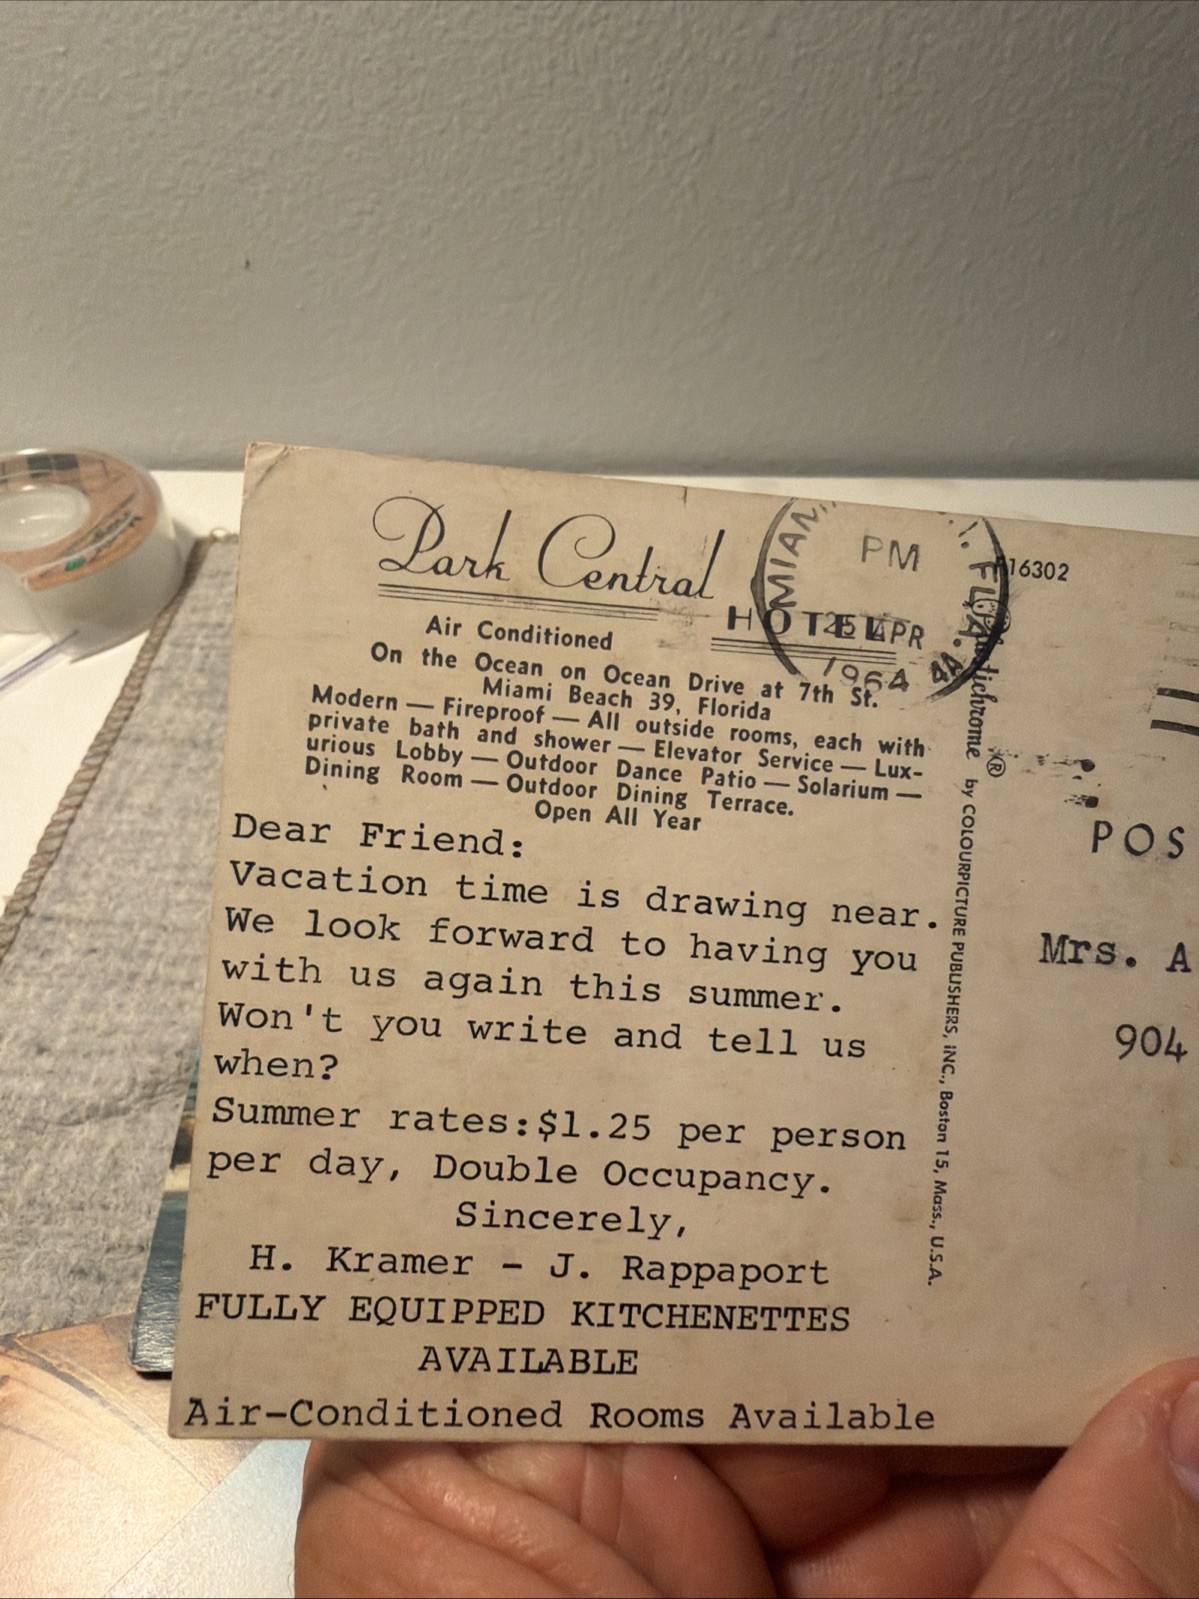 Park Central
HOTEL
Air Conditioned
On the Ocean on Ocean Drive at 7th St.
Miami Beach 39, Florida
Modern — Fireproof — All outside rooms, each with
private bath and shower — Elevator Service — Lux-
urious Lobby — Outdoor Dance Patio — Solarium —
Dining Room — Outdoor Dining Terrace.
Open All Year
Dear Friend:
Vacation time is drawing near.
We look forward to having you
with us again this summer.
Won't you write and tell us
when?
Summer rates:$1.25 per person
per day, Double Occupancy.
Sincerely,
H. Kramer - J. Rappaport
FULLY EQUIPPED KITCHENETTES
AVAILABLE
Air-Conditioned Rooms Available
MIAM
FLA.
PM
25 APR
1964
16302
Plastichrome ® by COLOURPICTURE PUBLISHERS, INC., Boston 15, Mass., U.S.A.
POS
Mrs. A
904